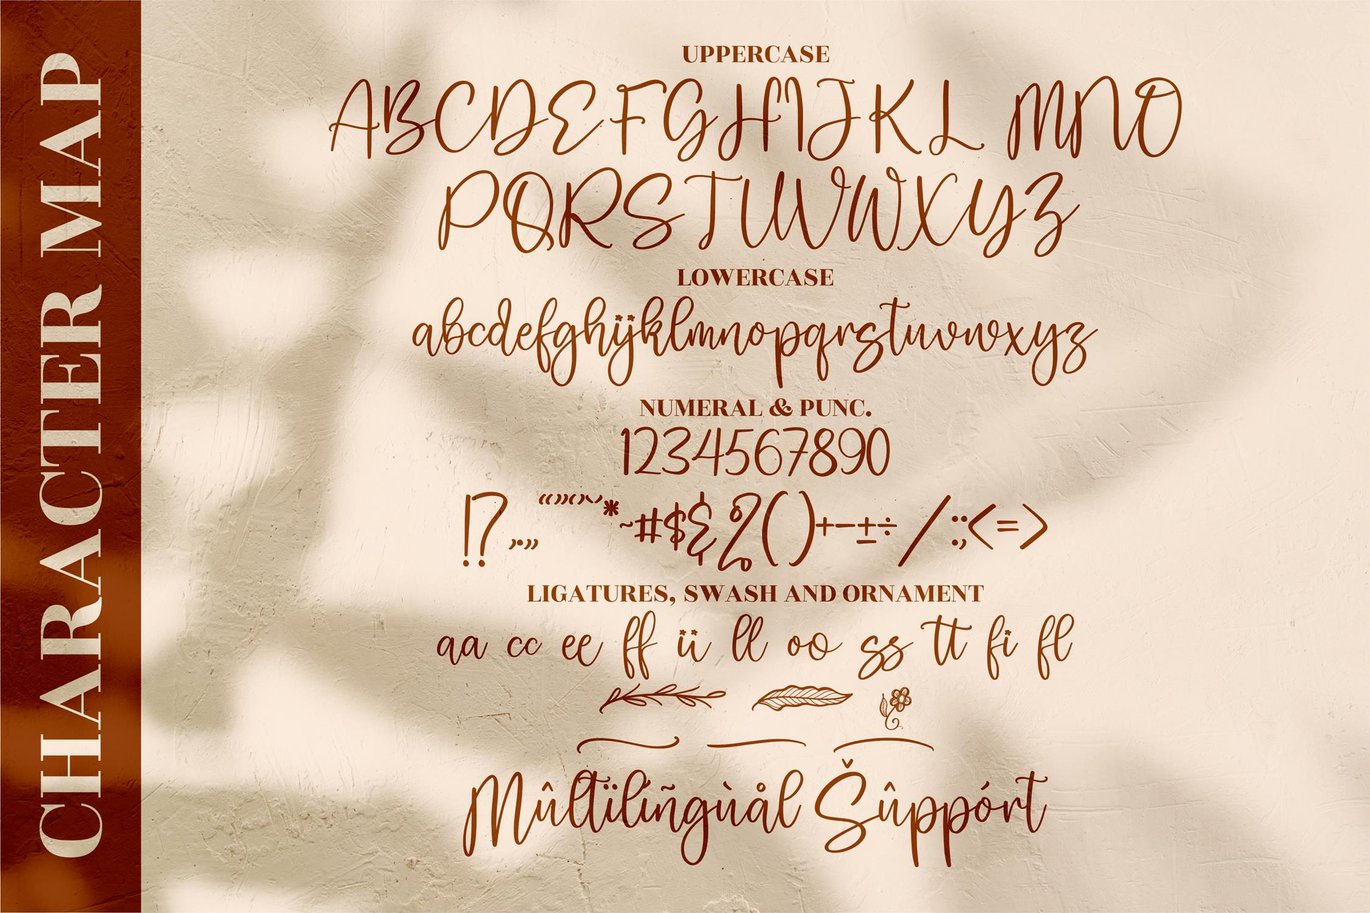 CHARACTER MAP
UPPERCASE
ABCDEFGHIJKL MNO
PQRSTUVWXYZ
LOWERCASE
abcdefghijklmnopqrstuvwxyz
NUMERAL & PUNC.
1234567890
!?,.„ “”‘’*~#$&%()+−±÷ /:;<=>
LIGATURES, SWASH AND ORNAMENT
aa cc ee ff ii ll oo ss tt fi fl
Mûltïlíñgùål Šûppórt